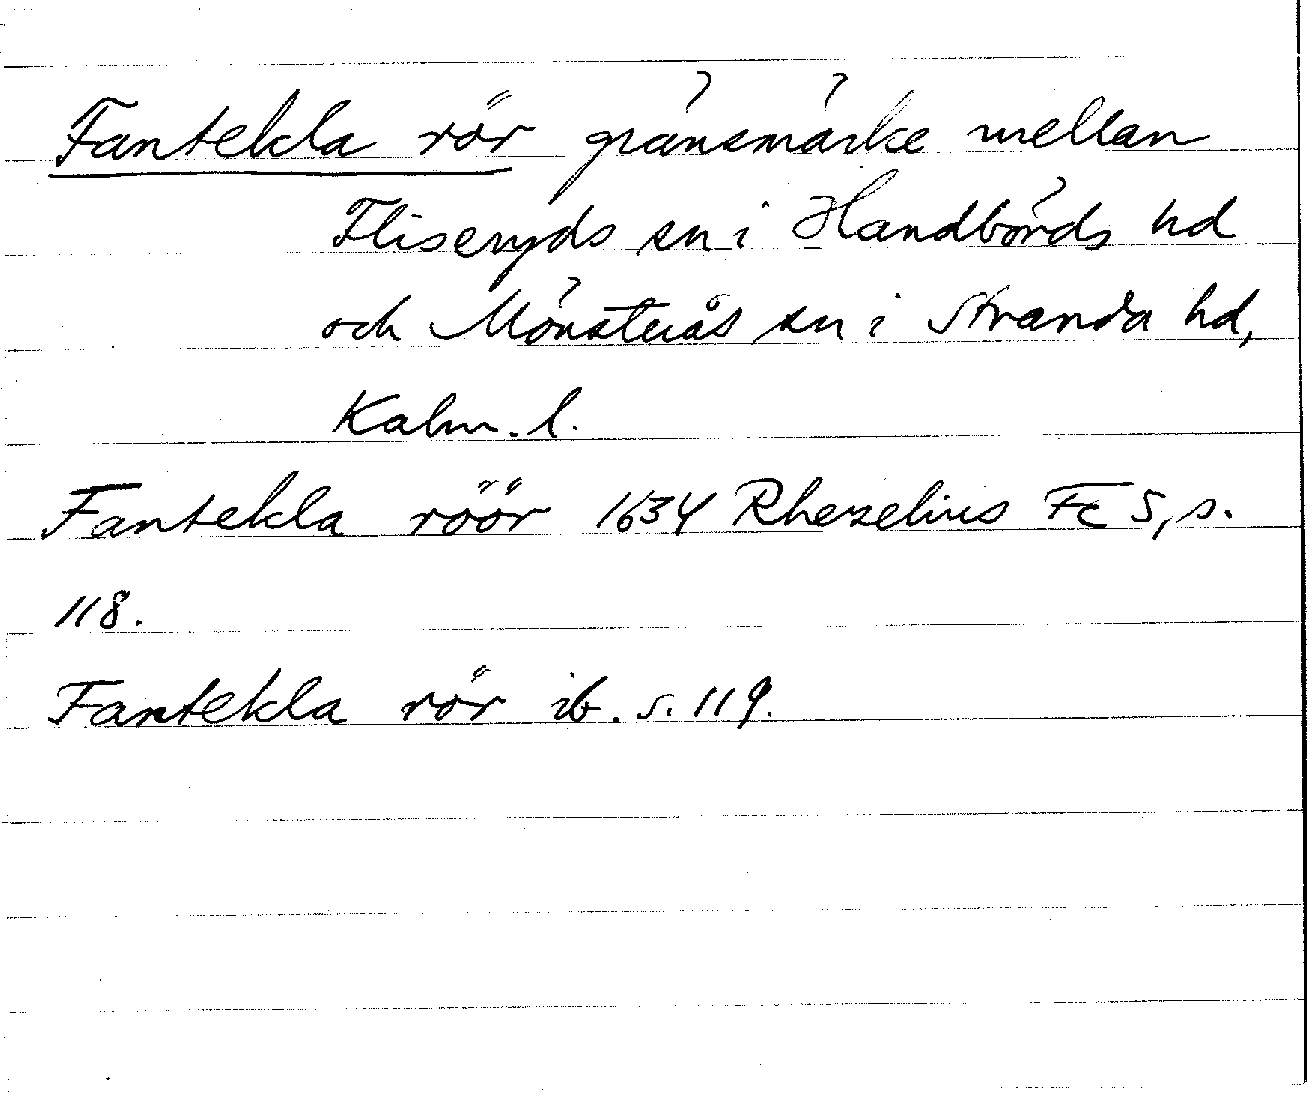 Fantekla rör gränsmärke mellan
Fliseryds sn i Handbörds hd
och Mönsterås sn i Stranda hd,
Kalm. l.
Fantekla röör 1634 Rhezelius Fc 5, s.
118.
Fantekla rör ib. s. 119.